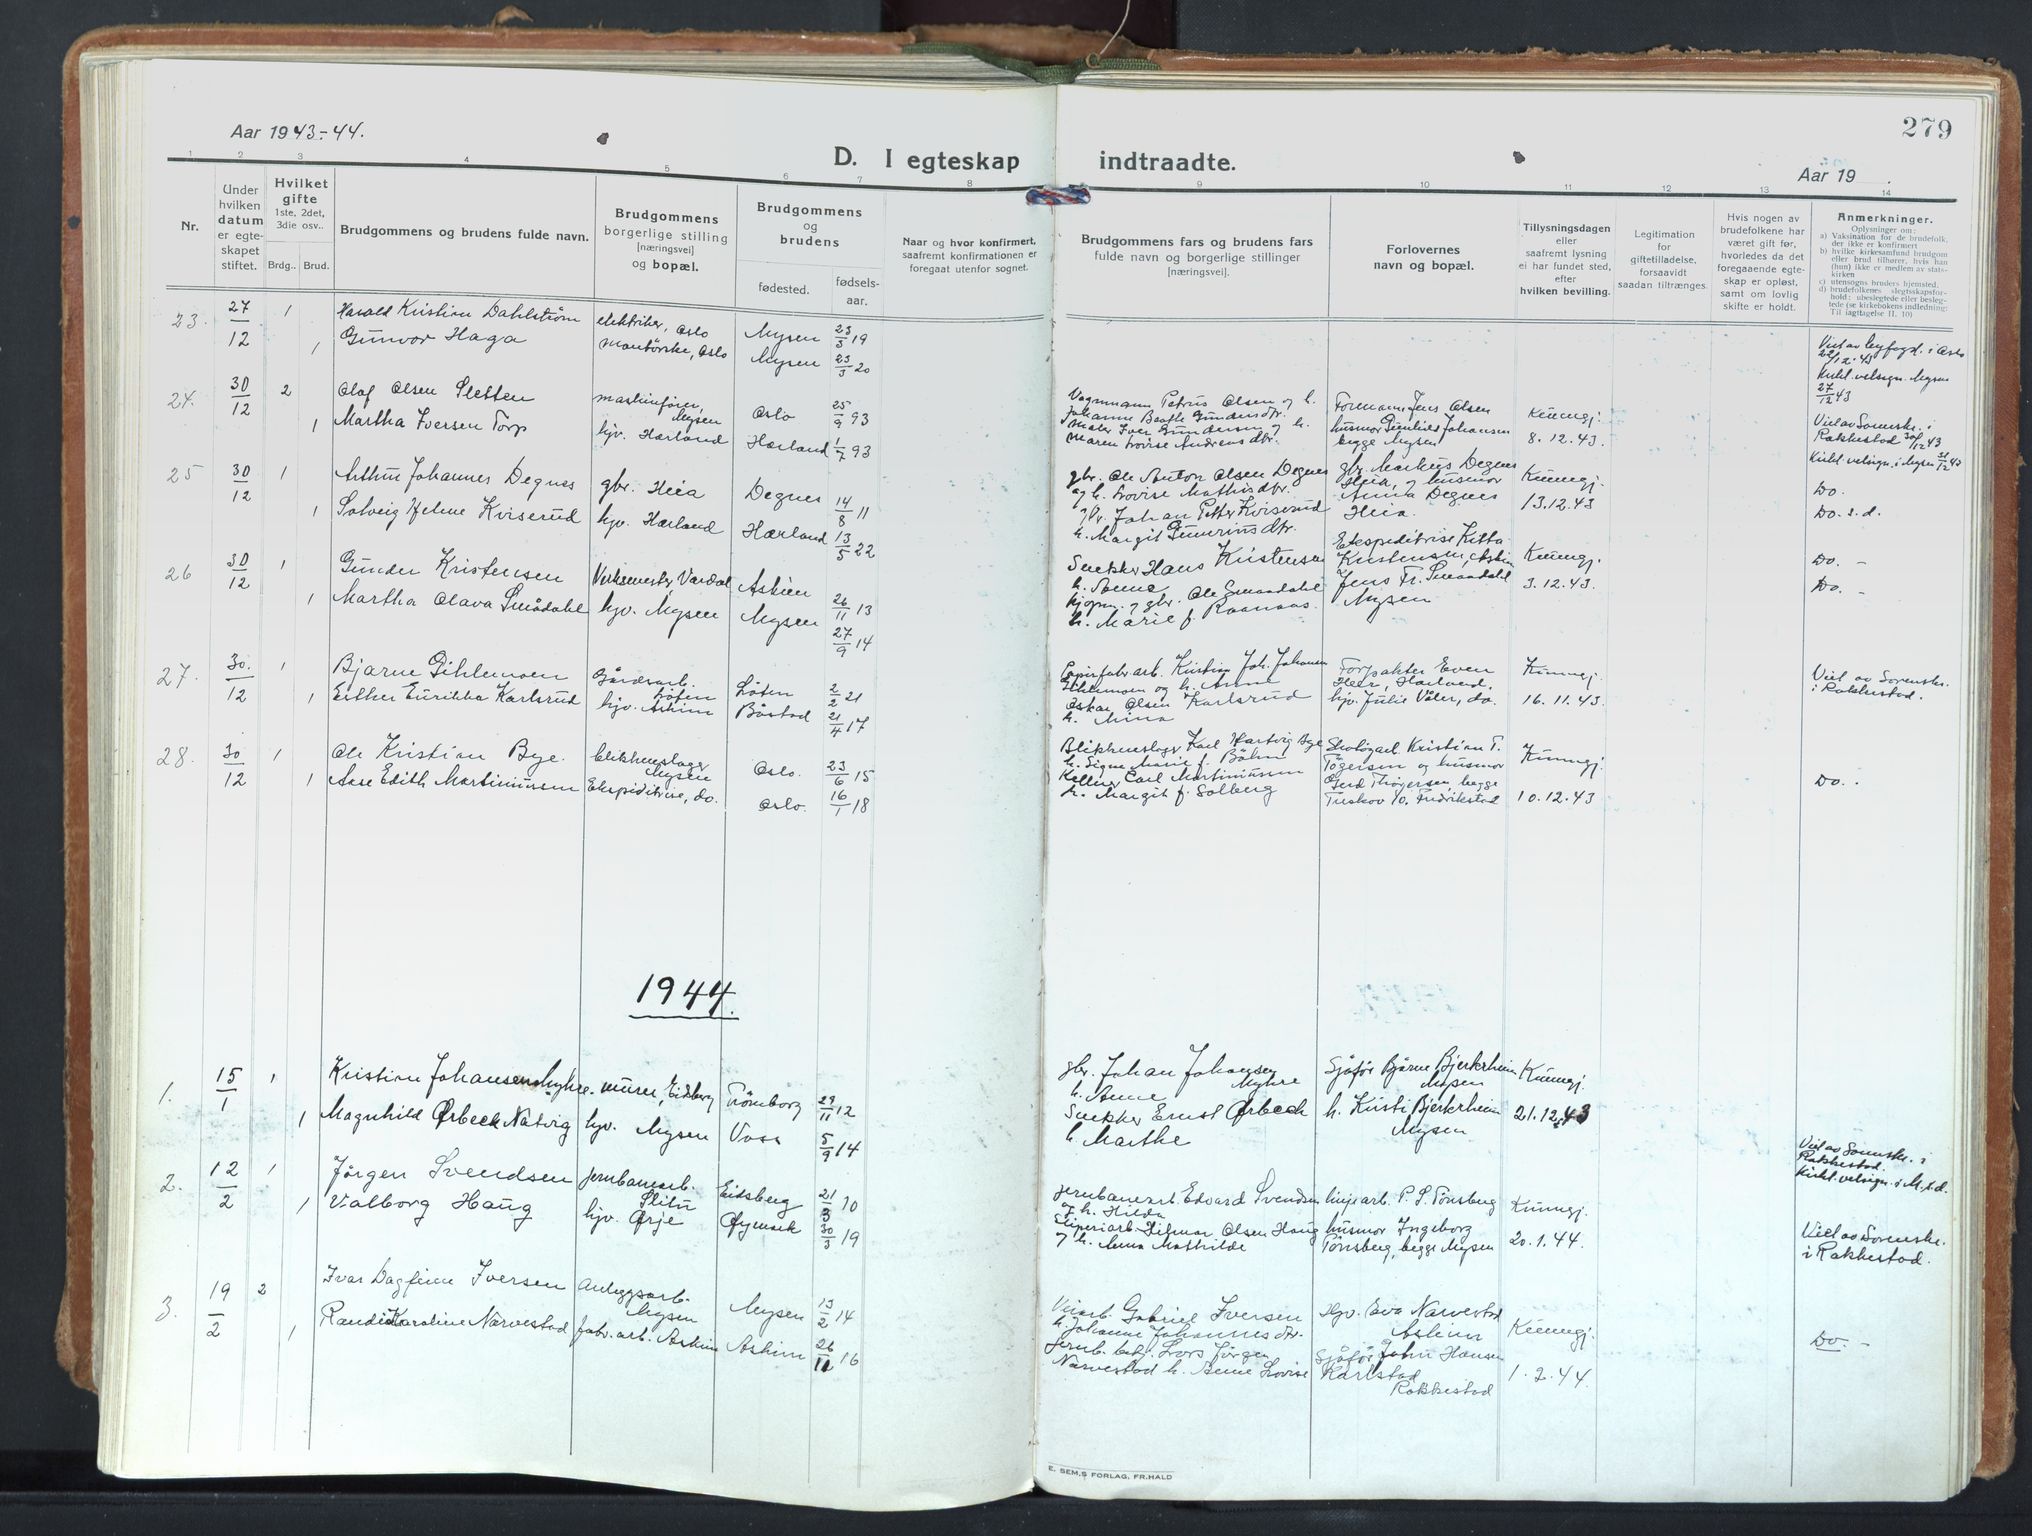 Aar 1943-44.
279
D. I egteskap indtraadte.
Aar 19
1 2 3 4 5 6 7 8 9 10 11 12 13 14
Nr.
Under
hvilken
datum
er egte-
skapet
stiftet.
Hvilket
gifte
1ste, 2det,
3die osv..
Brdg.. Brud.
Brudgommens og brudens fulde navn.
Brudgommens
borgerlige stilling
[næringsvei]
og bopæl.
Brudgommens
og
brudens
fødested.
fødsels-
aar.
Naar og hvor konfirmert,
saafremt konfirmationen er
foregaat utenfor sognet.
Brudgommens fars og brudens fars
fulde navn og borgerlige stillinger
[næringsvei].
Forlovernes
navn og bopæl.
Tillysningsdagen
eller
saafremt lysning
ei har fundet sted,
efter
hvilken bevilling.
Legitimation
for
giftetilladelse,
forsaavidt
saadan tiltrænges.
Hvis nogen av
brudefolkene har
været gift før,
hvorledes da det
foregaaende egte-
skap er opløst,
samt om lovlig
skifte er holdt.
Anmerkninger.
Oplysninger om:
a) Vaksination for de brudefolk,
der ikke er konfirmert
b) hvilke kirkesamfund brudgom
eller brud tilhører, hvis han
(hun) ikke er medlem av stats-
kirken
c) utensogns bruders hjemsted.
d) brudefolkenes slegtsskapsfor-
hold: ubeslegtede eller besleg-
tede (se kirkebokens indledning:
Til iagttagelse II. 10)
23. 27/12 1 Harald Kristian Dahlstrøm elektriker, Oslo Mysen 23/3 19
1 Gunvor Haga Oslo Mysen 23/3 20
Viet av byfogd. i Oslo
22/12.43
Kirkl. velsign. Mysen
27/12 43
24. 30/12 2 Olaf Olsen Sletten maskinfører, Mysen Oslo 25/9 93
1 Martha Iversen Torp hjv. Hærland Hærland 1/7 93
Vognmann Petrus Olsen og h.
Johanne Beathe Gundersdtr.
Maler Iver Gundersen og h.
Maren Lovise Andreasdtr.
Formann Jens Olsen
husmor Gunhild Johansen
begge Mysen
Kunngj.
8.12.43.
Viet av Sorenskr. i
Rakkestad 30/12 43
Kirkl. velsign. i Mysen 31/12 43
25 30/12 1 Arthur Johannes Degnes gbr. Heia Degnes 14/8 11
1 Solveig Helene Kviserud hjv. Hærland Hærland 13/5 22
gbr. Ole Anton Olsen Degnes
og h. Lovise Mathisdtr.
gbr. Johan Petter Kviserud
h. Margit Gunerius dtr.
gbr. Markus Degnes
Heia, og husmor
Anna Degnes
Heia.
Kunngj.
13.12.43
Do.
Do. s.d.
26 30/12 1 Gunder Kristensen Verksmester, Vardal Askim 26/11 13
1 Martha Olava Smådahl hjv. Mysen Mysen 27/9 14
Snekker Hans Kristensen
h. Anne
kjøpm. og gbr. Ole Smaadahl
h. Marie f. Raanaas.
Ekspeditrise Kitta
Kristensen, Askim
Jens Fr. Smaadahl
Mysen
Kunngj.
3.12.43.
Do. -
Do. -
27. 30./12 1 Bjarne Gihlemoen Gårdsarb. Løten Løten 2/2 21
1 Esther Eurikka Karlsrud hjv. Askim Båstad 21/4 17
Papirfabr.arb. Kristian Joh. Johansen
Gihlemoen og h. Anna
Oskar Olsen Karlsrud
h. Mina
Forpakter Even
Heer Hærland.
hjv. Julie Våler, do.
Kunngj.
16.11.43.
Viet av Sorenskr.
i Rakkestad.
28. 30/12 1 Ole Kristian Bye. blikkenslager Mysen Oslo. 23/6 15
1 Aase Edith Martiniussen Ekspeditrise, do. Oslo. 16/1 18
Blikkenslager Karl Hartvig Bye
h. Signe Marie f. Bøhn
Kellner Carl Martiniussen
h. Margit f. Solberg
Skotøyarb. Kristian T.
Tøgersen og husmor
Gerd Thøgersen, begge
Fredrikstad
Kunngj.
10.12.43
Do. -
1944.
1. 15/1 1 Kristian Johansen Myhre. murer, Eidsberg Trømborg 29/11 12
1 Magnhild Ørbeck Natvig hjv. Mysen Voss 5/9 14
gbr. Johan Johansen Myhre
h. Anne
Snekker Ernst Ørbeck
h. Marthe
Sjåfør Bjarne Bjerkerheim
Mysen
h. Kirsti Bjerkerheim
Mysen
Kunngj.
21.12.43
Viet av Sorenskr. i
Rakkestad.
Kirkl. velsign. i M. s.d.
2. 12/2 1 Jørgen Svendsen jernbanearb. Slitu Eidsberg 21/3 10
1 Valborg Haug hjv. Ørje Øymark 30/3 19
jernbanearb. Edvard Svendsen
og h. Hilda
Sliperiarb. Hilmar Olsen Haug
og h. Anna Mathilde
linjearb. P. S. Tønsberg
husmor Ingeborg
Tønsberg, begge Mysen
Kunngj.
20.1.44.
Viet av Sorenskr.
i Rakkestad.
3. 19/2 2 Ivar Dagfinn Iversen Anleggsarb. Mysen Mysen 13/2 14
1 Randi Karoline Narvestad fabr. arb. Askim Askim 26/11 16
Veiarb. Gabriel Iversen
h. Johanne Johannesdtr.
jernb. betj. Lars Jørgen
Narvestad h. Anne Lovise
Hjv. Eva Narvestad
Askim
Sjåfør John Hansen
Karlstad
Rakkestad
Kunngj.
1.2.44.
Do. -
E. SEM,S FORLAG, FR.HALD